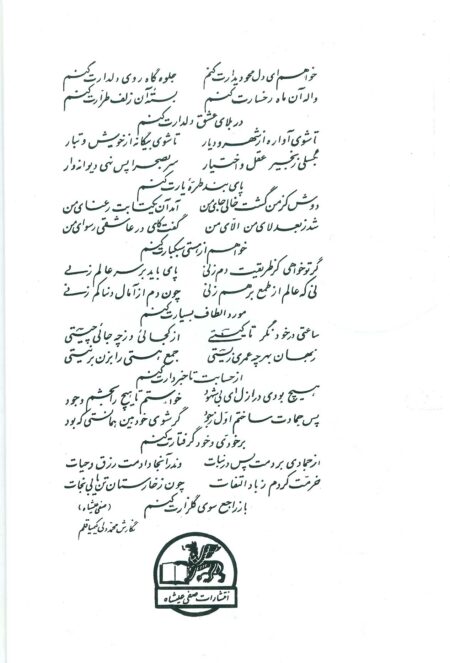 خواهم ای دل محو دیدارت کنم جلوه گاه روی دلدارت کنم
واله آن ماه رخسارت کنم بستهٔ آن زلف طرارت کنم
در بلای عشق دلدارت کنم
تا شوی آواره از شهر و دیار تا شوی بیگانه از خویش و تبار
بگسلی زنجیر عقل و اختیار سر به صحرا پس نهی دیوانه وار
پای بند طرهٔ یارت کنم
دوش کز من گشت خالی جای من آمد آن یکتا بت رعنای من
شد ز بعد لای من الای من گفت کای در عاشقی رسوای من
خواهم از هستی سبکبارت کنم
گر تو خواهی کز طریقت دم زنی پای باید بر سر عالم زنی
نی که عالم از طمع بر هم زنی چون دم از آمال دنیا کم زنی
مورد الطاف بسیارت کنم
ساعتی در خود نگر تا کیستی از کجائی وز چه جائی چیستی
در جهان بهر چه عمری زیستی جمع هستی را بزن بر نیستی
از حسابت تا خبردارت کنم
هیچ بودی در ازل ای بی شهود خواستم تا هیچ را بخشم وجود
پس جمادت ساختم اول ز جود گر شوی خودبین همانستی که بود
بر خودی و خود گرفتارت کنم
از جمادی بردمت پس در نبات وندر آنجا دادمت رزق و حیات
خرمت کردم ز باد التفات چون ز خارستان تن یابی نجات
باز راجع سوی گلزارت کنم
(صفی علیشاه)
نگارش محمدولی کیمیاقلم
انتشارات صفی علیشاه